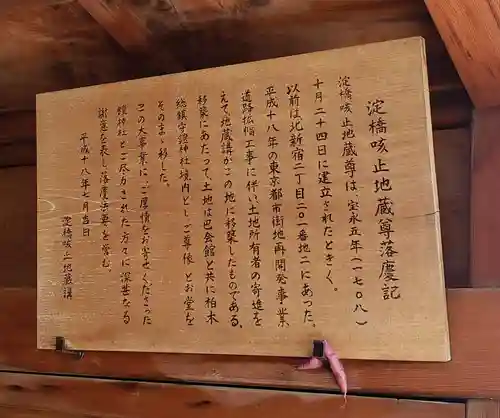 淀橋咳止地蔵尊落慶記
淀橋咳止地蔵尊は、宝永五年(一七〇八)
十月二十四日に建立されたときく。
以前は北新宿二丁目二〇一番地二にあった。
平成十八年の東京都市街地再開発事業
道路拡幅工事に伴い、土地所有者の寄進を
えて、地蔵講がこの地に移築したものである。
移築にあたって、土地は巴会館と共に柏木
総鎮守鎧神社境内とし、ご尊体とお堂を
そのまま移した。
この大事業に、ご厚情をお寄せくださった
鎧神社とご尽力された方々に深甚なる
謝意を表し、落慶法要を営む。
平成十八年七月吉日
淀橋咳止地蔵講